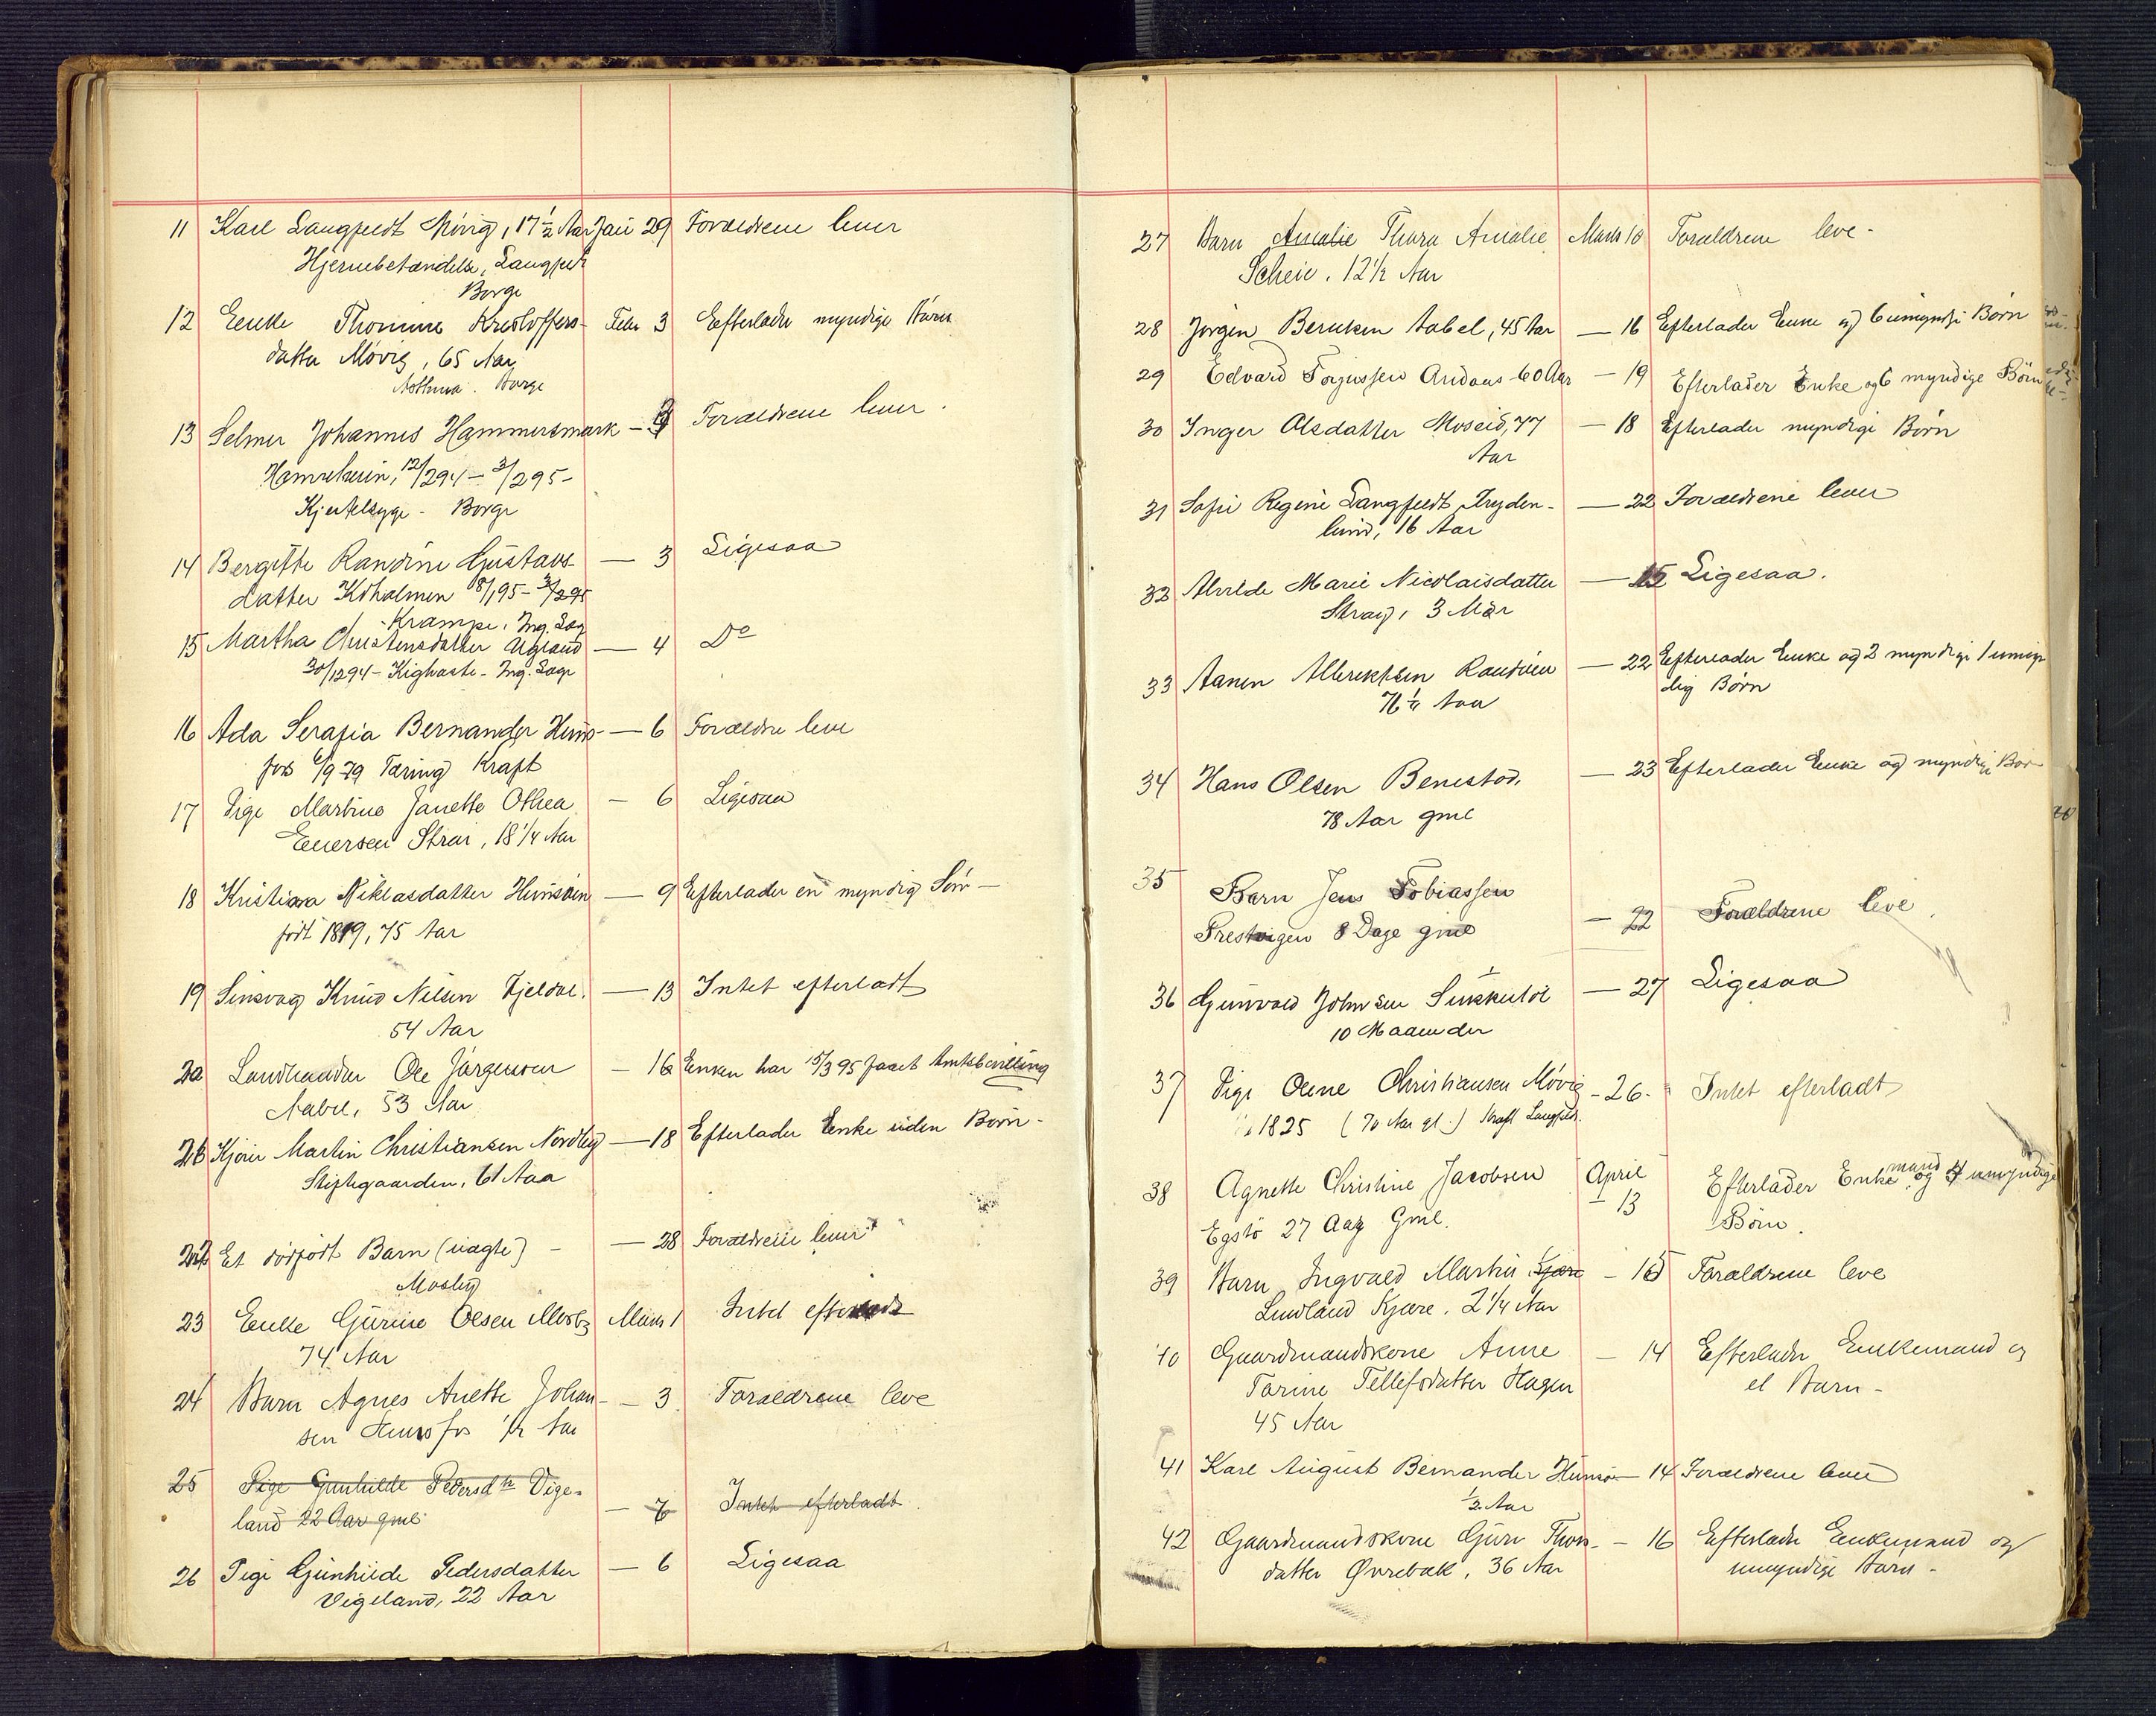 11 Karl Langfeldt Møvig, 17½ Aar Jan 29 Forældrene lever
Hjernebetændelse, Langfeldt
Borge
12 Enke Thomine Kristoffers- Febr 3 Efterlader myndige Børn
datter Møvig, 65 Aar
Asthma. Borge
13 Selmer Johannes Hammersmark — 3 Forældrene lever.
Hamreheien, 12/294 – 3/295 –
Kjertelsyge – Borge
14 Bergitte Randine Gustavs- — 3 Ligesaa
datter Kdholmen 8/195 – 3/295
Krampe. Ing. Læg
15 Martha Christensdatter Ugland — 4 Do
30/1294 – Kighoste – Ing. Læge
16 Ada Serafia Bernander Huns- — 6 Forældre leve
fos 6/9 79 Tæring Kraft
17 Pige Martine Janette Othea — 6 Ligesaa
Enersen Strai, 18¼ Aar
18 Kristiana Niklasdatter Hunsøen — 9 Efterlader en myndig Søn —
født 1819, 75 Aar
19 Sindsvag Knud Nilsen Fjeldal. — 13 Intet efterladt
54 Aar
20 Landhandler Ole Jørgensen — 16 Enken har 15/3 95 faaet Amtsbevilling
Aabel, 53 Aar
21 Martin Christiansen Nordlig — 18 Efterlader Enke uden Børn –
Stiftsgaarden, 61 Aar
22 Et dødfødt Barn (uægte) – — 28 Forældrene lever
Mosby
23 Enke Gurine Olsen Mosby Marts 1 Intet efterladt
74 Aar
24 Barn Agnes Anette Johan- — 3 Forældrene leve
sen Hunsfos ½ Aar
25 Pige Gunhilde Pedersdtr Vige-
land 22 Aar gml. — 7 Intet efterladt.
26 Pige Gunhilde Pedersdatter — 6 Ligesaa
Vigeland, 22 Aar
27 Barn Amalie Thora Amalie Marts 10 Forældrene leve –
Scheie. 12½ Aar
28 Jørgen Berntsen Aabel, 45 Aar — 16 Efterlader Enke og 6 umyndige Børn
29 Edvard Torjussen Andaas 60 Aar — 19 Efterlader Enke og 6 myndige Børn
30 Inger Olsdatter Moseid, 77 — 18 Efterlader myndige Børn
Aar
31 Sofie Regine Langfeldt Tryden- — 22 Forældrene lever
lund, 16 Aar
32 Alvilde Marie Nicolaisdatter — 15 Ligesaa.
Stray, 3 Mdr
33 Aanen Albrektsen Raudøen — 22 Efterlader Enke og 2 myndige 1 umyn
76¼ Aar dig Børn
34 Hans Olsen Benestod, — 23 Efterlader Enke og myndige Bør
78 Aar gml
35 Barn Jens Tobiassen
Prestvigen 8 Dage gml — 22 Forældrene leve
36 Gunvald Johnsen — 27 Ligesaa
10 Maaneder
37 Pige Olene Christiansen Møvig – 26 – Intet efterladt
1825 (70 Aar gl.) Kraft Langfeldt.
38 Agnette Christine Jacobsen April Efterlader Enkemand og 4 umyndige
Egstø 27 Aar Gml. – 13 Børn.
39 Barn Ingvald Martin Kjære — 15 Forældrene leve
Lindland Kjære. 2¼ Aar
40 Gaardmandskone Anne — 14 Efterlader Enkemand og
Torine Tellefsdatter Hagen et Barn –
45 Aar
41 Karl August Bernander Hunsø — 14 Forældrene lever
½ Aar
42 Gaardmandskone Guro Thors- — 16 Efterlader Enkemand og
datter Øvrebæk, 36 Aar umyndige Børn –